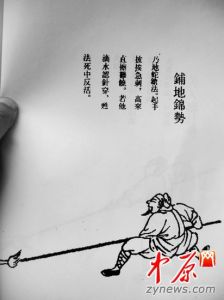 鋪地錦勢
乃地蛇鎗法。起手
披挨急刺。高來
直擦難饒。若他
滴水認針穿。甦
法死中反活。
中原网
zynews.com